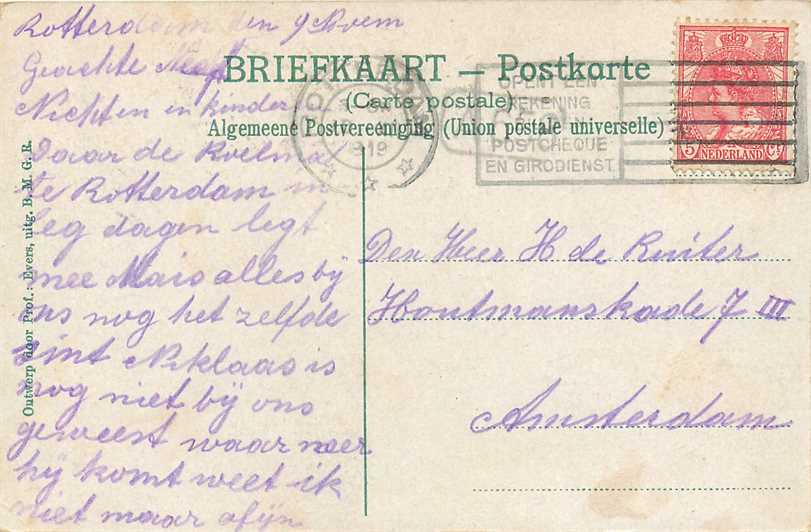 Rotterdam den 9 Novem
Geachte Neef
Nichten en kinder
Daar de Roelmal
te Rotterdam in
leg dagen legt
mee Maio alles bij
ons nog het zelfde
Sint Niklaas is
nog niet bij ons
geweest waar neer
hij komt weet ik
niet maar afijn
BRIEFKAART — Postkarte
(Carte postale)
Algemeene Postvereeniging (Union postale universelle)
OPENT EEN
REKENING
POSTCHEQUE
EN GIRODIENST
1919
5 NEDERLAND Ct
Den Heer H de Ruiter
Houtmanskade 7 III
Amsterdam
Ontwerp voor Prof. Evers, uitg. B. M. G. R.